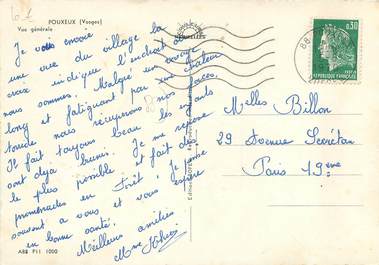 6.1
POUXEUX (Vosges)
Vue générale
Je vous envoie
une vue du village la
croix indique l'endroit où
nous sommes. Malgré un voyage
long et fatiguant par une chaleur
torride nous récuperons nos forces.
Il fait toujours beau les enfants
ont deja bruni. Je me repose
le plus possible et fait des
promenades en forêt. Je pense
souvent a vous et vous espère
en bonne santé.
Meilleures amitiés
Mme
ABB P11 1000
0,30
REPUBLIQUE FRANÇAISE
88
Melles Billon
29 Avenue Secrétan
Paris 19eme